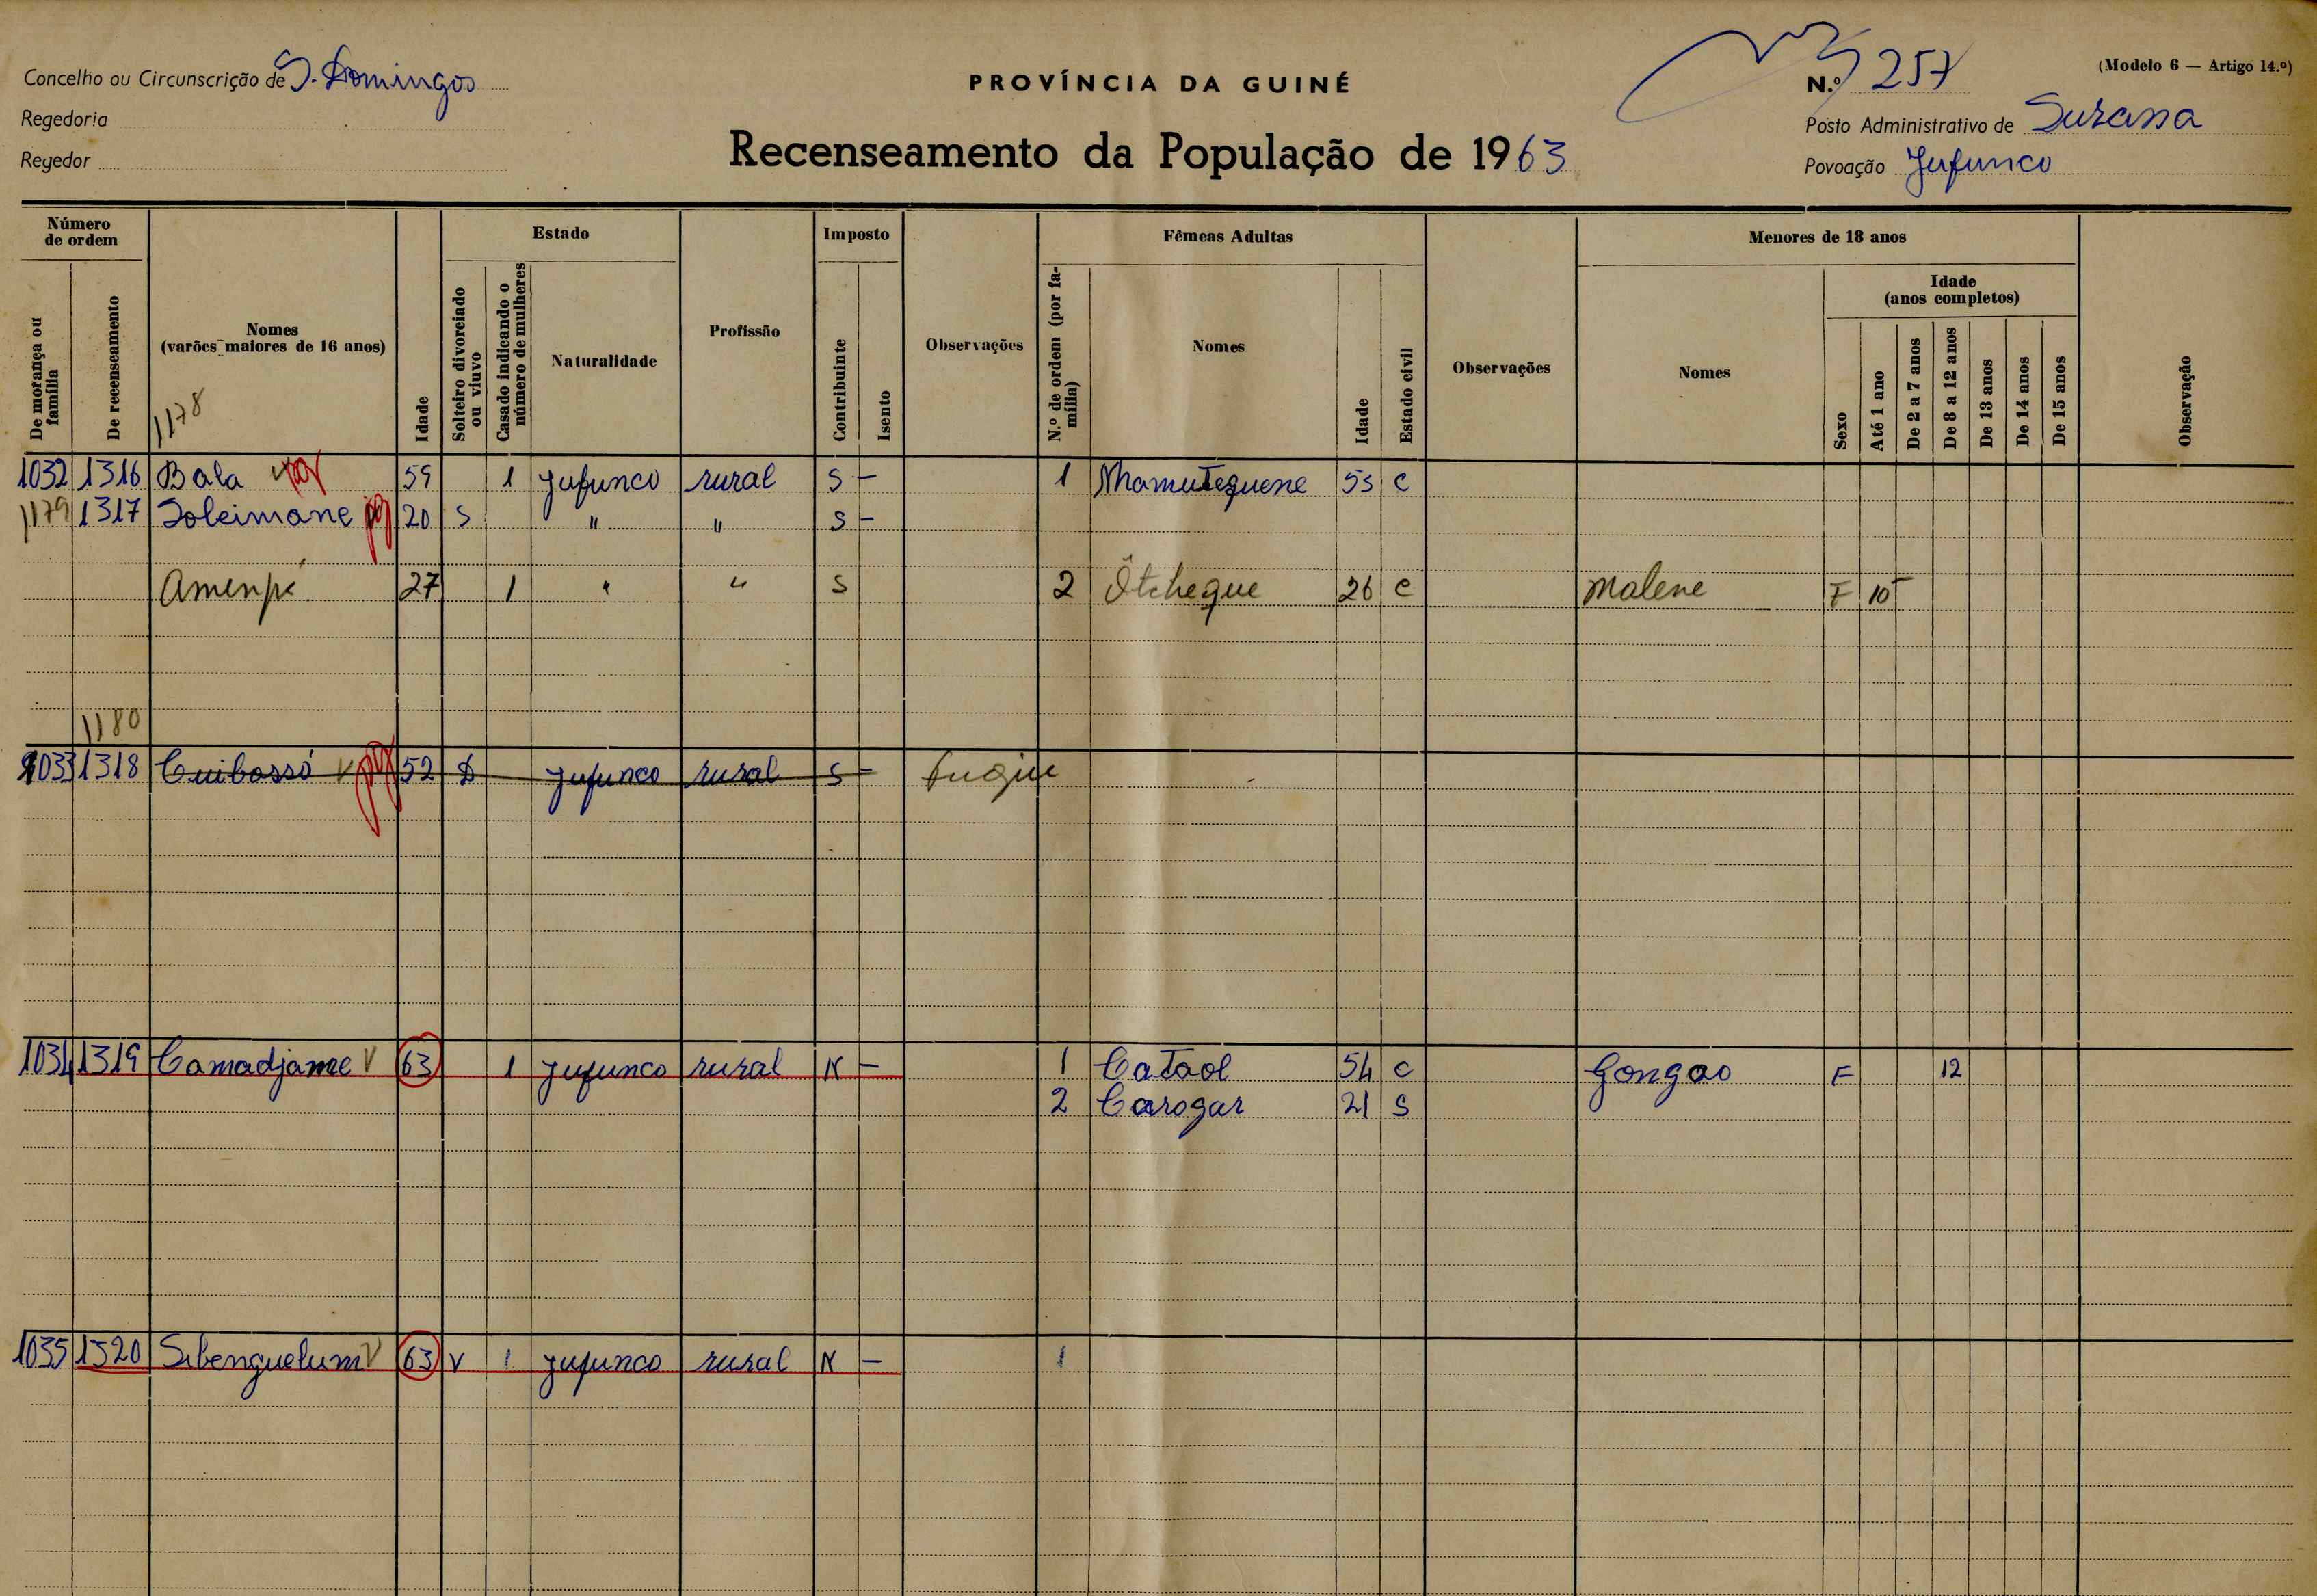 Concelho ou Circunscrição de S. Domingos
Regedoria
Regedor
PROVÍNCIA DA GUINÉ
Recenseamento da População de 1963
N.º 257
(Modelo 6 — Artigo 14.º)
Posto Administrativo de Suzana
Povoação Jufunco
Número de ordem
De morança ou família
De recenseamento
Nomes
(varões maiores de 16 anos)
1178
Idade
Estado
Solteiro divorciado ou viuvo
Casado indicando o número de mulheres
Naturalidade
Profissão
Imposto
Contribuinte
Isento
Observações
Fêmeas Adultas
N.º de ordem (por família)
Nomes
Idade
Estado civil
Observações
Menores de 18 anos
Nomes
Sexo
Idade
(anos completos)
Até 1 ano
De 2 a 7 anos
De 8 a 12 anos
De 13 anos
De 14 anos
De 15 anos
Observação
1032 1316 Bala 59 1 Jufunco rural S — 1 Nhamuteguene 53 C
1179 1317 Soleimane 20 S " " S —
Amenpé 27 1 " " S 2 Ôtcheque 26 C Malene F 10
1180
1033 1318 Cuibossó V 52 D Jufunco rural S — fugiu
1034 1319 Camadjame V 63 1 Jufunco rural N — 1 Cataol 54 C Gongao F 12
2 Carogar 21 S
1035 1320 Sibenguelum V 63 V 1 Jufunco rural N — 1